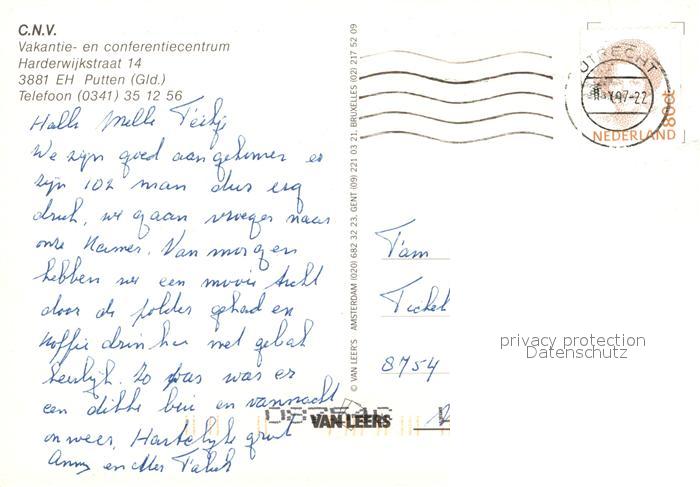 C.N.V.
Vakantie- en conferentiecentrum
Harderwijkstraat 14
3881 EH Putten (Gld.)
Telefoon (0341) 35 12 56
Hallo
We zijn goed aangekomen er
zijn 102 man dus erg
druk, we gaan vroeger naar
onze Kamer. Van morgen
hebben we een mooie tocht
door de polder gehad en
koffie drinken met gebak
heerlijk. Zo pas was er
een dikke bui en vannacht
onweer. Hartelijke groet
Anny en
© VAN LEER'S AMSTERDAM (020) 682 32 23, GENT (09) 221 03 21, BRUXELLES (02) 217 52 09
VAN LEERS
UTRECHT
97-22
80ct
NEDERLAND
Fam
8754
privacy protection
Datenschutz